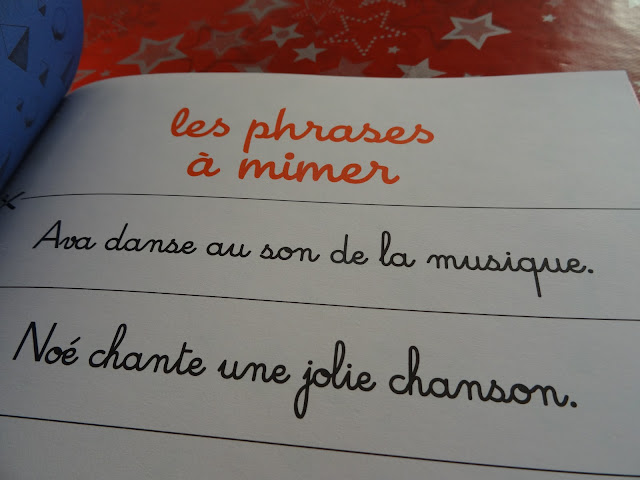 les phrases
à mimer
Ava danse au son de la musique.
Noé chante une jolie chanson.